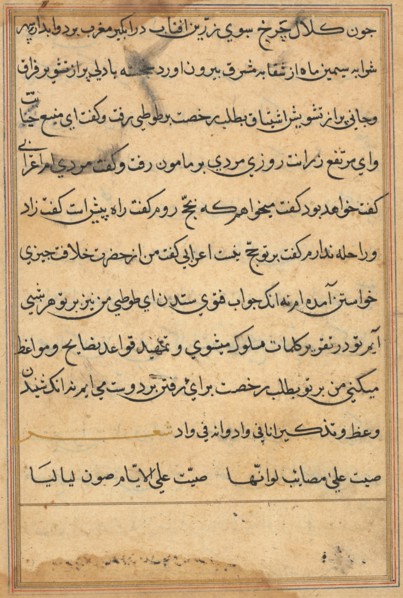 چون کلال چرخ سبوی زرین افتاب در آبگیر مغرب برد و ابدارچه
شرابه سیمین ماه از سقابه مشرق بیرون اورد خجسته با دلی پر از تشویر فراق
و جانی پر از تشویش اشتیاق بطلب رخصت بر طوطی رفت و کفت ای منبع حیات
و ای مرتفع روزی مردی بر مامون رفت و کفت مردی ام اعرابی
کفت خواهد بود کفت میخواهم که بحج روم کفت راه پیش است کفت زاد
و راحله ندارم کفت بر تو حج نیست اعرابی کفت من از حضرت خلافت چیزی
خواستن آمده ام نه انک جواب فتوی ستدن ای طوطی من نیز بر تو هر شبی
آیم تو در تقریر کلمات ملوک میشوی و تمهید قواعد نصایح و مواعظ
میکنی من بر تو بطلب رخصت برای رفتن بر دوست می ایم نه انک شنیدن
وعظ و تذکیر انا فی واد وانه فی واد شعر
صبت علی مصائب لو انها صبت علی الایام صرن لیالیا